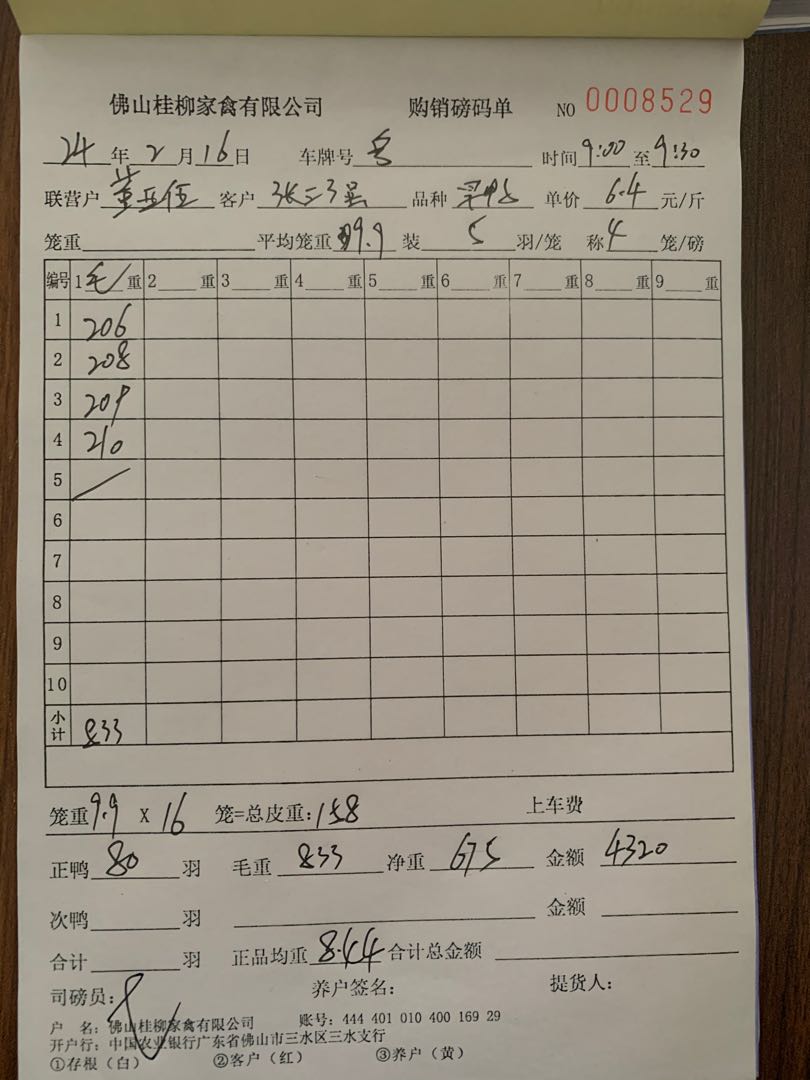 佛山桂柳家禽有限公司 购销磅码单 NO 0008529
24年2月16日 车牌号 时间9:00至9:30
联营户 客户 品种 单价6.4元/斤
笼重 平均笼重9.9 装5羽/笼 称4笼/磅
编号 1毛重 2 重 3 重 4 重 5 重 6 重 7 重 8 重 9 重
1 206
2 208
3 209
4 210
5
6
7
8
9
10
小计 833
笼重9.9 X 16 笼=总皮重:158 上车费
正鸭80羽 毛重833净重675金额4320
次鸭 羽 金额
合计 羽 正品均重8.44合计总金额
司磅员: 养户签名: 提货人:
户 名: 佛山桂柳家禽有限公司 账号: 444 401 010 400 169 29
开户行: 中国农业银行广东省佛山市三水区三水支行
①存根（白） ②客户（红） ③养户（黄）